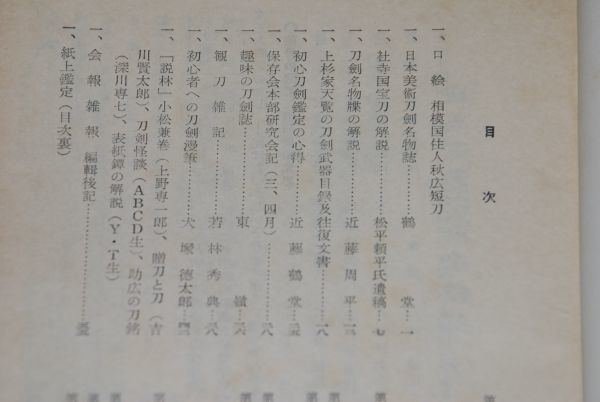 目次
一、口絵 相模国住人秋広短刀
一、日本美術刀剣名物誌…………鶴堂…一
一、社寺国宝刀の解説…………松平頼平氏遺稿…七
一、刀剣名物牒の解説…………近藤周平…
一、上杉家天覧の刀剣武器目録及往復文書…
一、初心刀剣鑑定の心得…………近藤鶴堂…
一、保存会本部研究会記(三、四月)…
一、趣味の刀剣誌…………東嶺…
一、観刀雑記…………若林秀典…
一、初心者への刀剣漫筆…………犬塚徳太郎…
一、「説林」小松兼巻(上野専一郎)、贈刀と刀(吉
川賢太郎)、刀剣怪談(ABCD生)、助広の刀銘
(深川専七)、表紙鐔の解説(Y・T生)
一、会報雑報 編輯後記…………
一、紙上鑑定(目次裏)